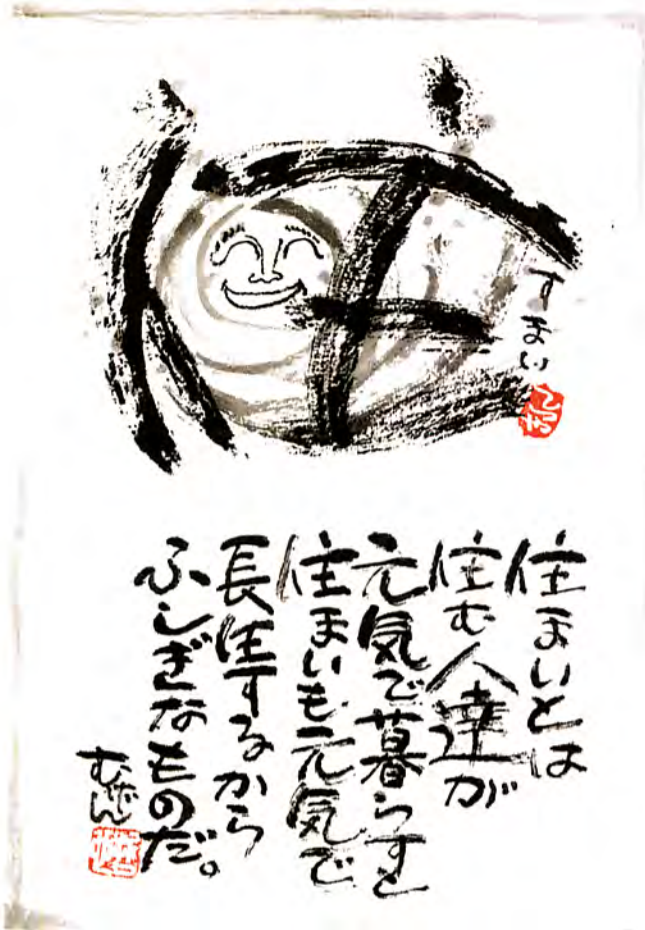 すまい
住まいとは
住む人達が
元気で暮らすと
住まいも元気で
長生するから
ふしぎなものだ。